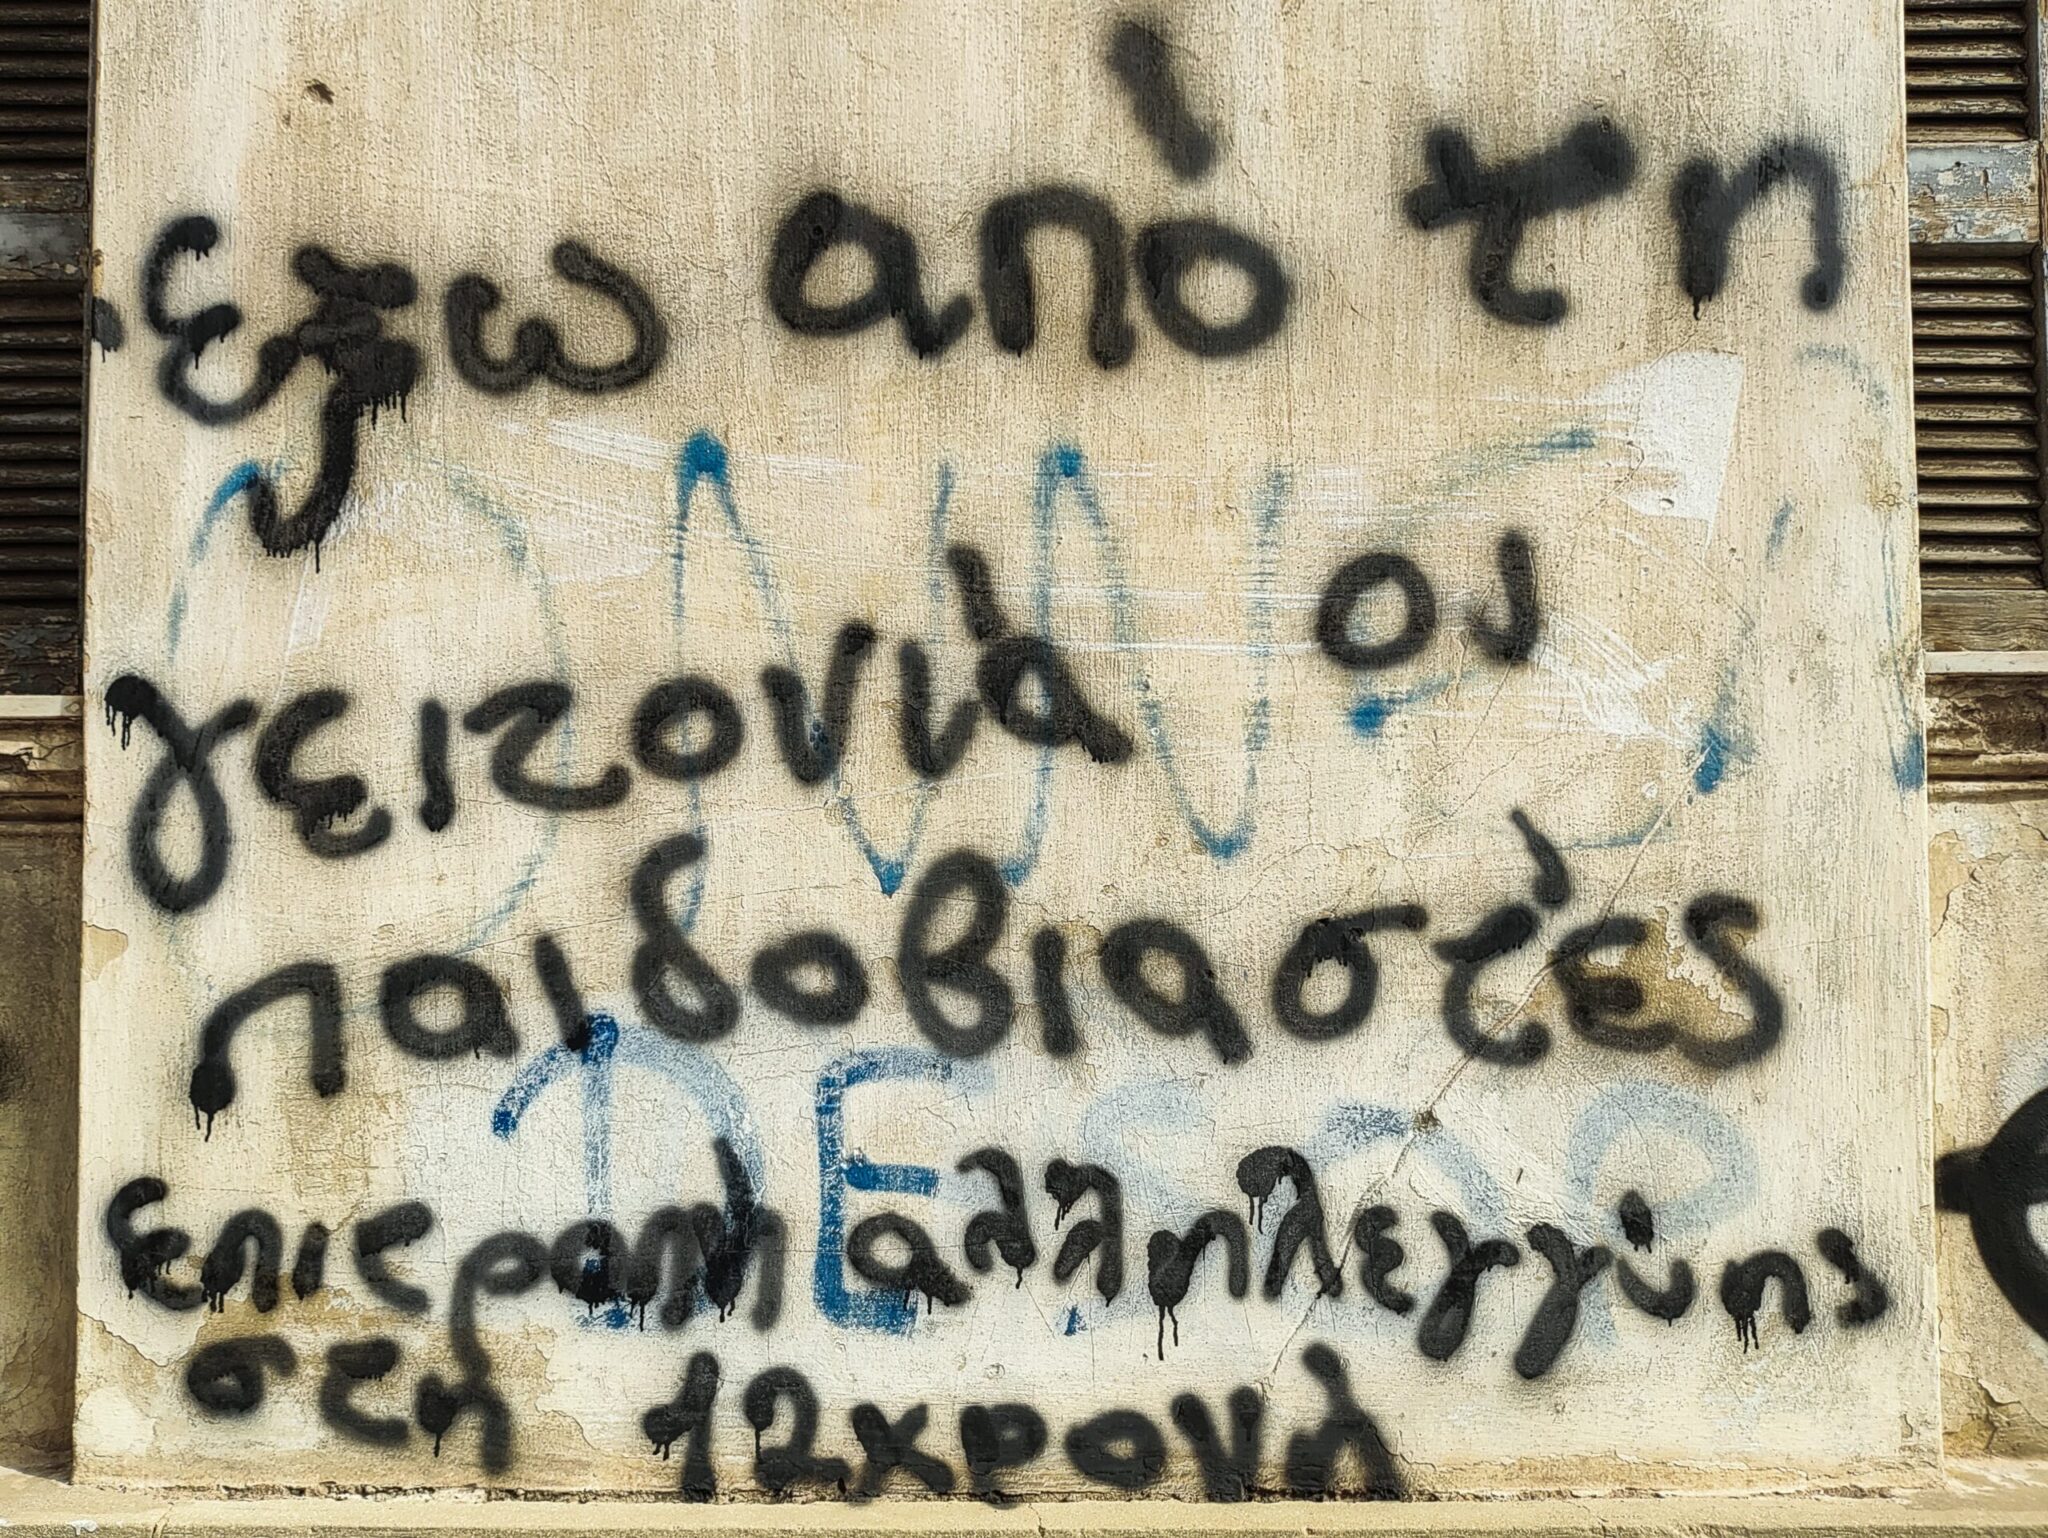 έξω από τη
γειτονιά οι
παιδοβιαστές
επιτροπή αλληλεγγύης
στη 12χρονή